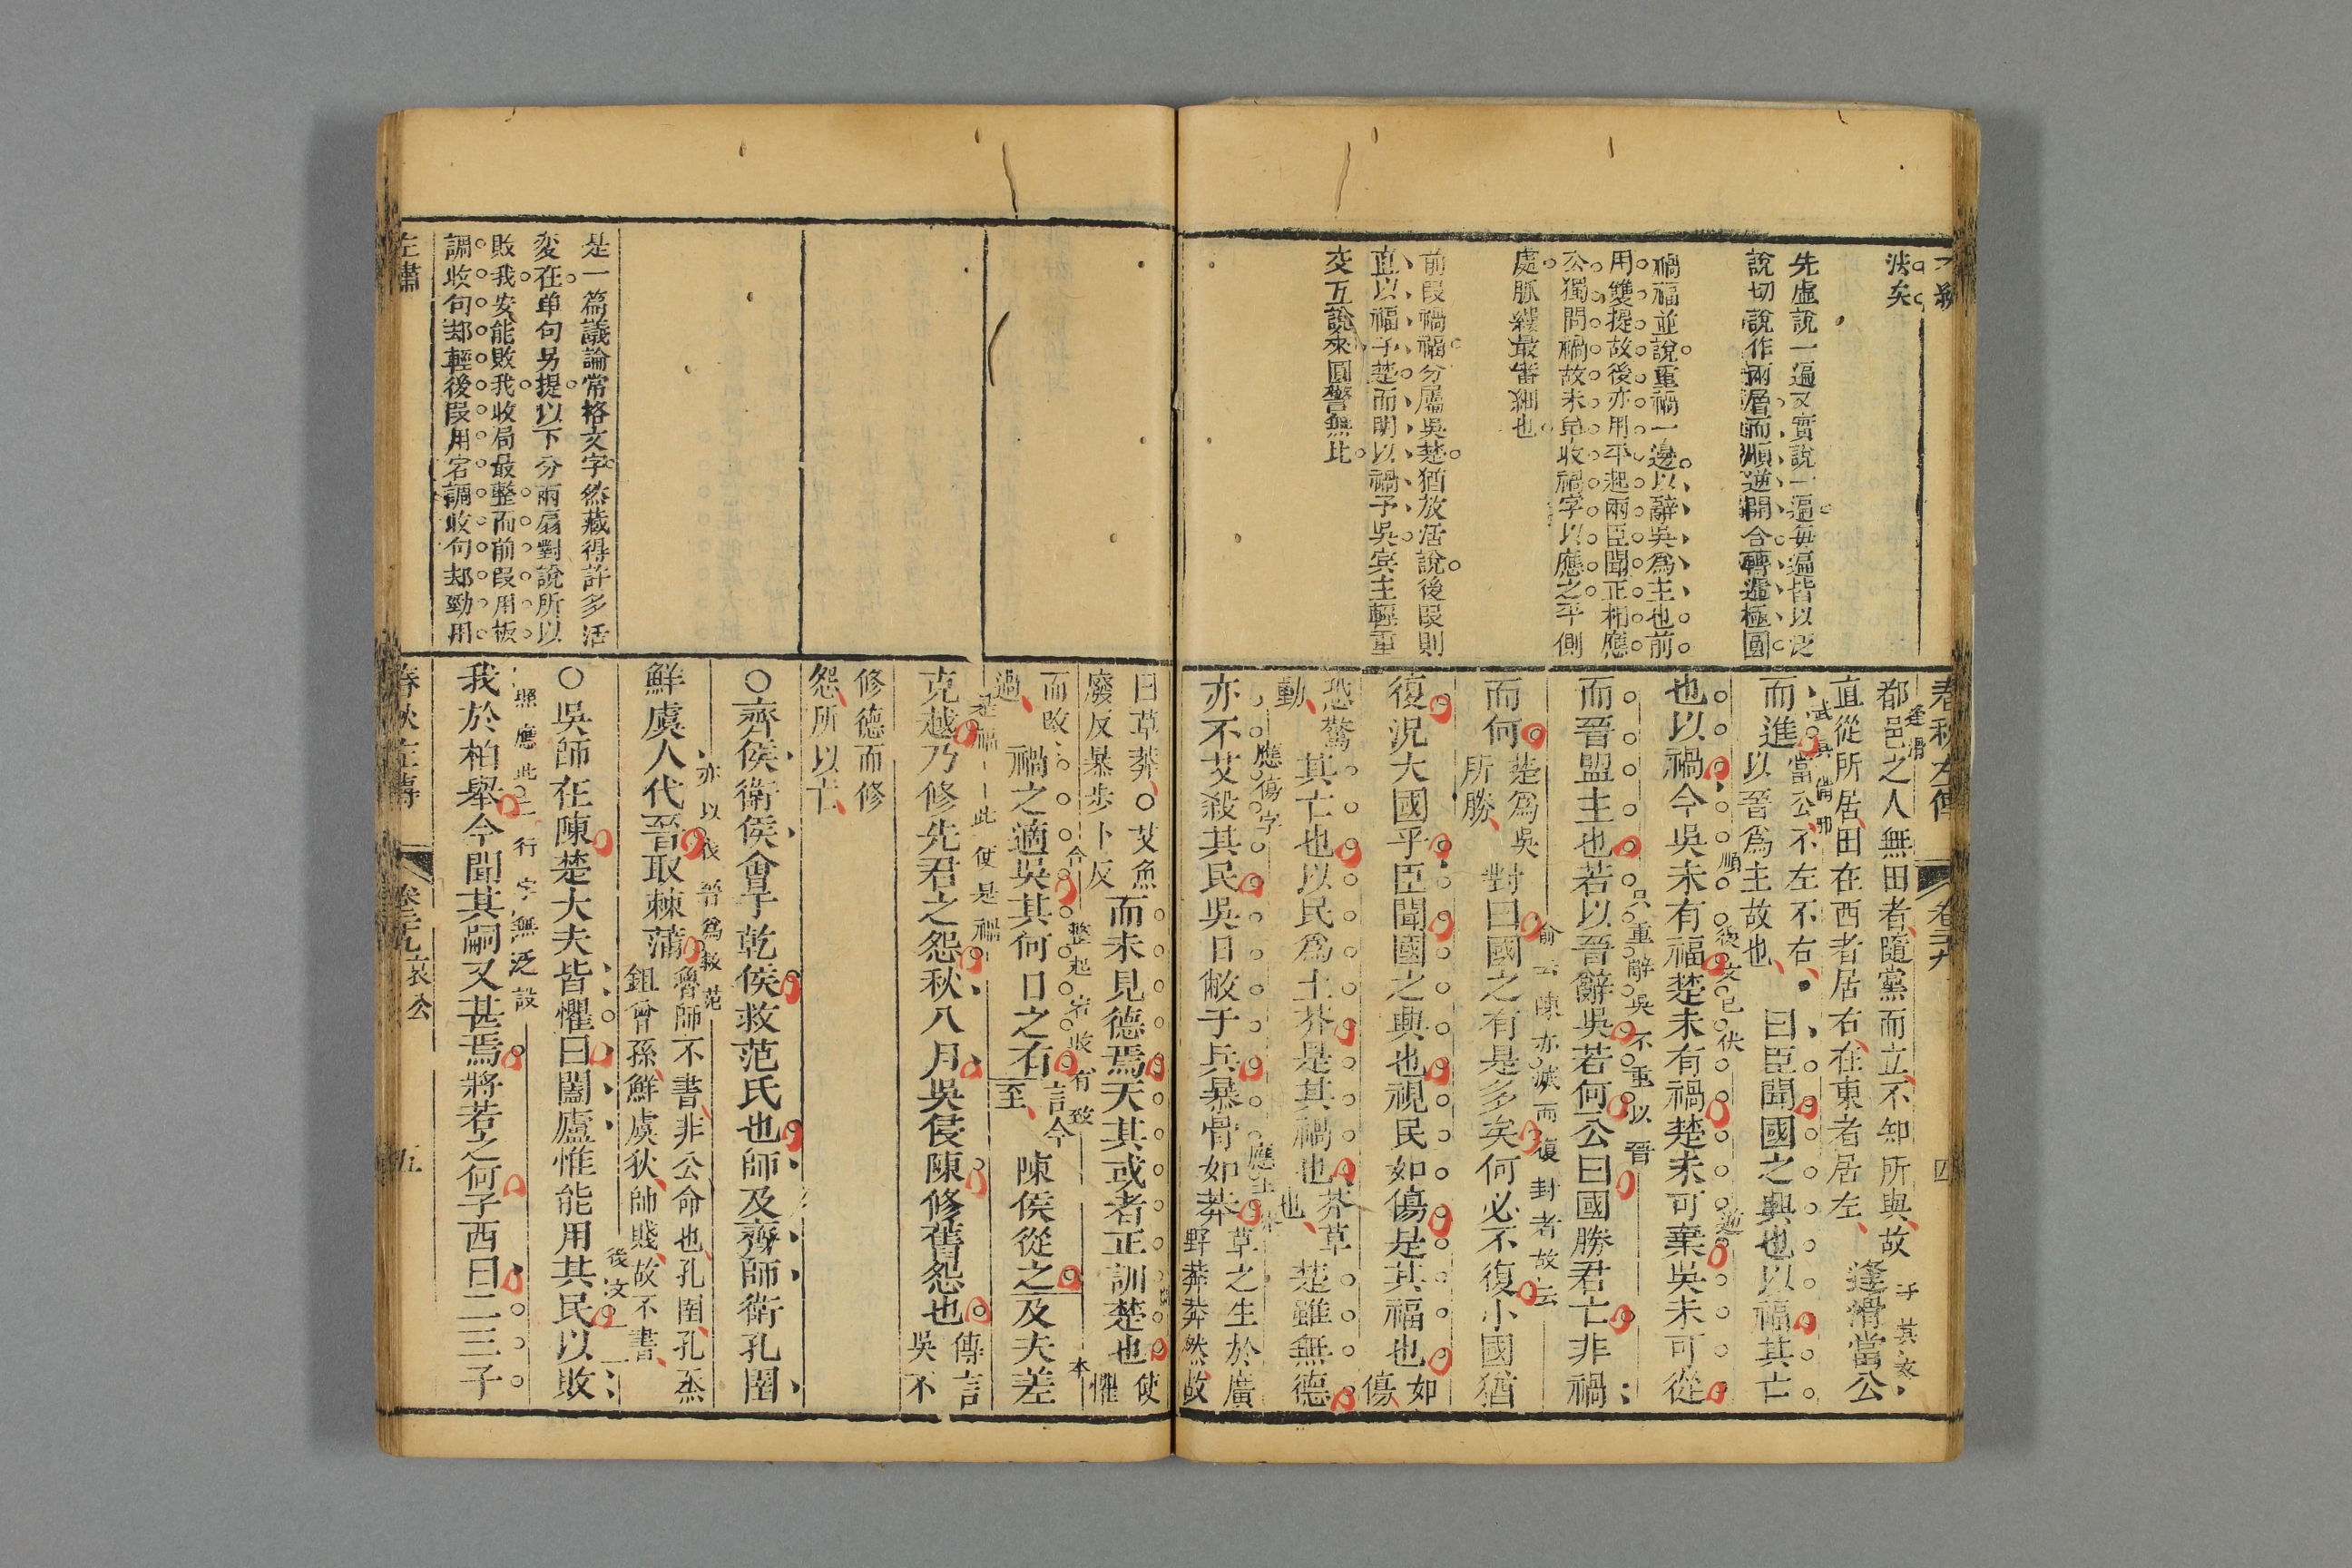 法矣
先虛說一遍又實說一遍每遍皆以
說切說作兩層而順逆開合轉遞極圓
禍福並說重禍一邊以辭吳為主也前
用雙提故後亦用平起兩臣聞正相應
公獨問禍故末單收禍字以應之平側
處脈縷最審細也
前段禍福分屬吳楚猶放活說後段則
直以福予楚而明以禍予吳賓主輕重
交互說來圓警無比
春秋左傳
卷三十九
四
都邑之人無田者隨黨而立不知所與故
直從所居田在西者居右在東者居左
逢滑當公
而進
當公不左不右
以晉為主故也
曰臣聞國之興也以福其亡
也以禍今吳未有福楚未有禍楚未可棄吳未可從
而晉盟主也若以晉辭吳若何公曰國勝君亡非禍
而何
楚為吳
所勝
對曰國之有是多矣何必不復小國猶
復況大國乎臣聞國之興也視民如傷是其福也
如傷
恐驚
動
其亡也以民為土芥是其禍也
芥草
也
楚雖無德
亦不艾殺其民吳日敝于兵暴骨如莽
草之生於廣
野莽莽然故
逢滑
武
順
後文已伏
逆
只重辭吳不重以晉
俞云陳亦滅而復封者故云
應傷字
曰草莽○艾魚
廢反暴步卜反
而未見德焉天其或者正訓楚也
使懼
而改
過
禍之適吳其何日之有
言今
至
陳侯從之及夫差
克越乃修先君之怨秋八月吳侵陳修舊怨也
傳言
吳不
修德而修
怨所以亡
○齊侯衛侯會于乾侯救范氏也師及齊師衛孔圉
鮮虞人伐晉取棘蒲
魯師不書非公命也孔圉孔烝
鉏曾孫鮮虞狄師賤故不書
○吳師在陳楚大夫皆懼曰闔廬惟能用其民以敗
我於柏舉今聞其嗣又甚焉將若之何子西曰二三子
是禍
此使是禍
亦以伐晉為救范
後文
照應此二行字無泛設
是一篇議論常格文字然藏得許多活
变在单句另提以下分兩扇對說所以
敗我安能敗我收局最整而前段用板
調收句却輕後段用宕調收句却勁用
左繡
春秋左傳
哀公
五